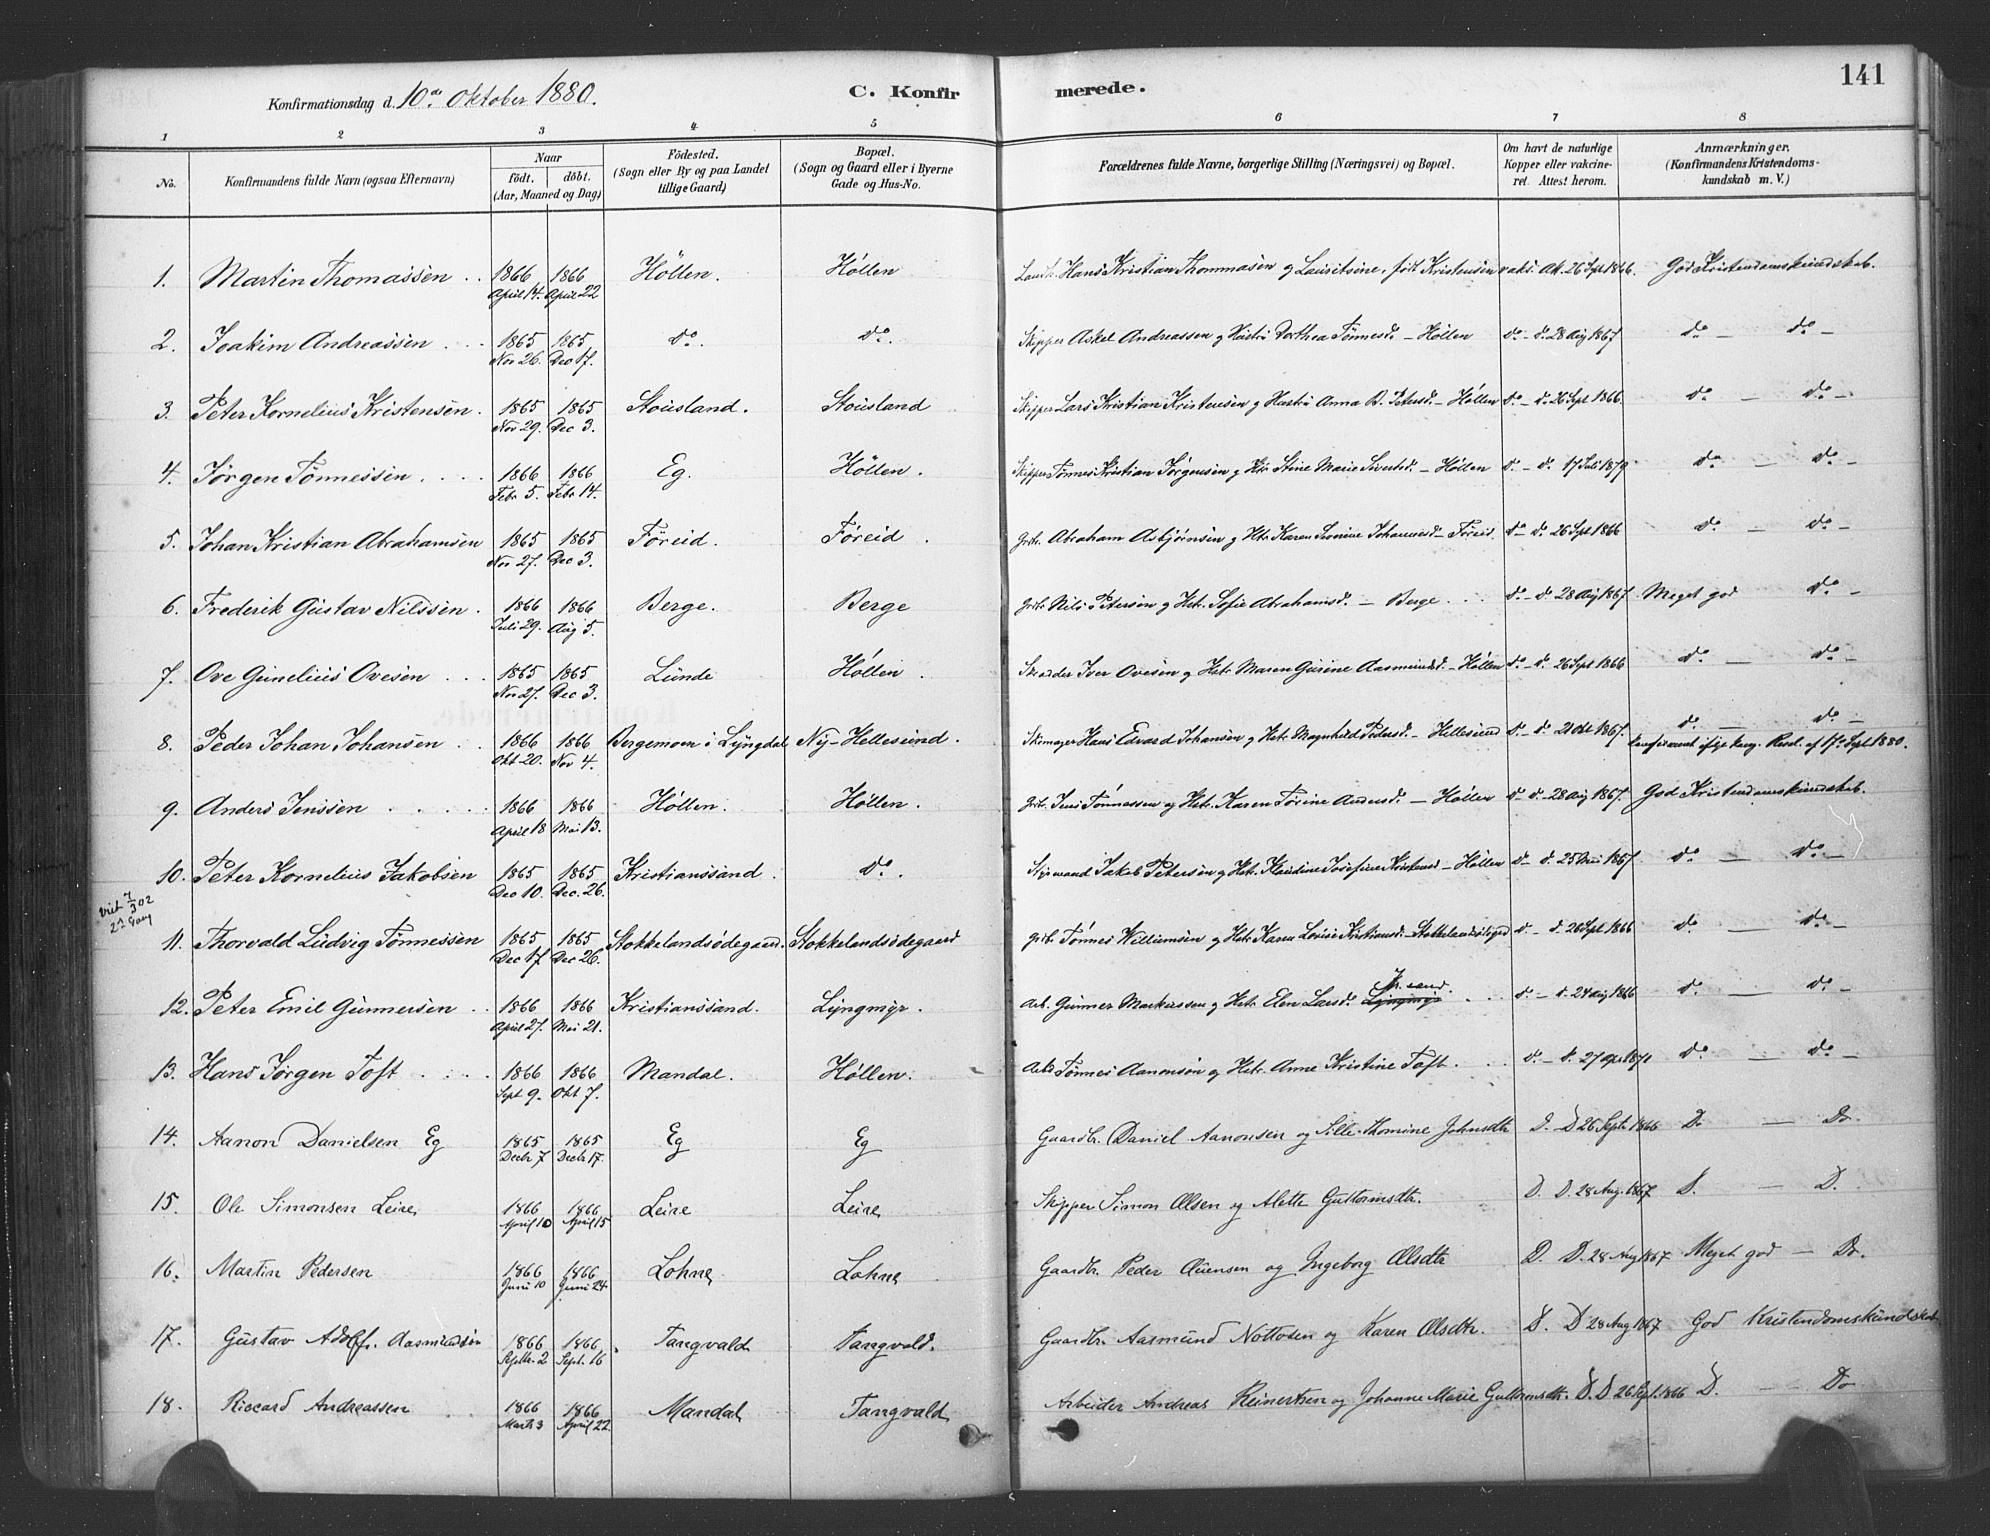 Konfirmationsdag d. 10de Oktober 1880. C. Konfirmerede. 141
1 2 3 4 5 6 7 8
No. Konfirmandens fulde Navn (ogsaa Efternavn) Naar født. døbt. (Aar, Maaned og Dag) Fødested. (Sogn eller By og paa Landet tillige Gaard) Bopæl. (Sogn og Gaard eller i Byerne Gade og Hus-No. Forældrenes fulde Navne, borgerlige Stilling (Næringsvei) og Bopæl. Om havt de naturlige Kopper eller vakcineret. Attest herom. Anmærkninger. (Konfirmandens Kristendomskundskab m. V.)
1. Martin Thomassen 1866 April 14. 1866 April 22 Høllen. Høllen Hans Kristian Thommasen og Lauritsine, født Kristensen vakc. At. 26 Spt 1866. God Kristendomskundskab.
2. Joakim Andreassen 1865 Nov 26. 1865 Dec 17. do. do. Skipper Askel Andreassen og Hustru Dorthea Tønnesd. – Høllen do – d. 28 Aug 1867 do – do –
3. Peter Kornelius Kristensen. 1865 Nov 29. 1865 Dec 3. Stousland. Stousland Skipper Lars Kristian Kristensen og Hustru Anna B. Petersd. – Høllen do – d. 26 Sept 1866 do – do –
4. Jørgen Tønnessen 1866 Febr 5. 1866 Febr 14. Eg. Høllen. Skipper Tønnes Kristian Jørgensen og Hstr Stine Marie Sivertsd. – Høllen do – d. 17 Juli 1879 do – do –
5. Johan Kristian Abrahamsen 1865 Nov 27. 1865 Dec 3. Føreid. Føreid. Grbr. Abraham Asbjørnsen og Hstr Karen Severine Johannesd – Føreid. do – do 26 Spt 1866 do – do –
6. Frederik Gustav Nilssen. 1866 Juli 29. 1866 Aug 5. Berge. Berge Grbr Nils Petersen og Hstr. Sofie Abrahamsd. – Berge do – d. 28 Aug 1867 Meget god do –
7. Ove Gunelius Ovesen 1865 Nov 27. 1865 Dec 3. Lunde Høllen. Iver Ovesen og Hstr. Maren Gurine Aasmundsd. – Høllen do – d. 26 Sept 1866 do – do –
8. Peder Johan Johansen 1866 Okt 20. 1866 Nov 4. Bergemoen i Lyngdal Ny-Hellesund. Skomager Hans Edvard Johansen og Hstr. Magnhild Pedersd. – Hellesund do – do 21 Okt 1867. do – do – konfirmeret ifølge kong. Resol. af 17de Sept 1880.
9. Anders Jenssen 1866 April 18 1866 Mai 13. Høllen. Høllen. Grbr. Jens Tønnessen og Hstr. Karen Tørine Andersd. – Høllen do – d. 28 Aug 1867. God Kristendomskundskab.
10. Peter Kornelius Jakobsen 1865 Dec 10. 1865 Dec. 26. Kristianssand. do. Styrmand Jakob Petersen og Hstr. Klaudine Josefine Kristensd – Høllen do – d. 25 Mai 1867. do – do –
viet 7/3 02 2den Gang
11. Thorvald Ludvig Tønnessen 1865 Dec 17 1865 Dec 26. Stokkelandsødegaard. Stokkelandsødegaard Grbr. Tønnes Williumsen og Hstr Karen Lovise Kristiansd. – Stokkelandsødegrd d. – d. 26 Spt 1866 do – do –
12. Peter Emil Gunnersen 1866 April 27. 1866 Mai 21. Kristianssand. Lyngmyr. Arb. Gunner Markussen og Hstr. Elen Larsd. Lyngmyr Kr.sand. d. – d. 24 Aug 1866 do – do –
13. Hans Jørgen Toft 1866 Sept 9. 1866 Okt 7. Mandal. Høllen. Arbd Tønnes Aanonsøn og Hstr. Anne Kristine Toft. d. – d. 27 Apr 1871 do – do –
14. Aanon Danielsen Eg 1865 Decbr 7 1865 Decbr 17. Eg Eg Gaardbr. Daniel Aanonsen og Sille Thomine Johnsdtr D. D 26 Septr 1866 D. – Do.
15. Ole Simonsen Leire 1866 April 10 1866 April 15 Leire Leire Skipper Simon Olsen og Alette Guttormsdtr. D. D. 28 Aug. 1867 D. – D.
16. Martin Pedersen 1866 Juni 10 1866 Juni 24. Lohne Lohne Gaardbr. Peder Evensen og Ingeborg Olsdtr D. D. 28 Aug 1867 Meget god – Do.
17. Gustav Adolf Aasmundsøn 1866 Septbr. 2 1866 Sept. 16 Tangvald Tangvald. Gaardbr. Aasmund Nottosen og Karen Olsdtr. D. D 28 Aug 1867 God Kristendomskundskab
18. Riccard Andreassen 1866 Marts 3 1866 April 22. Mandal Tangvald Arbeider Andreas Reinertsen og Johanne Marie Guttormsdtr. D. D 26 Sept. 1866 D. – Do